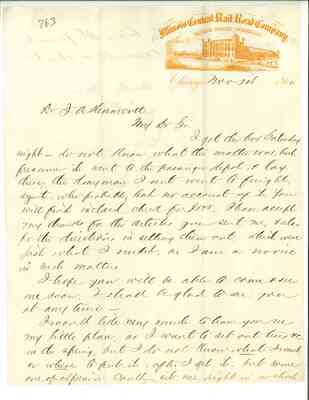 763
Illinois Central Rail Road Company,
Chicago, Nov 1st 186
Dr J A Kennicott
My Dr Sir
I got the box Saturday
night — do not know what the matter was, but
presume it went to the passenger depot & lay
there, the drayman I sent went to freight
agent, who probably had no account of it. You
will find inclosed check for
my thanks for the articles you sent me, &
for the directions in setting them out which were
just what I needed, as I am a novice
in such matters.
I hope you will be able to come & see
me soon. I shall be glad to see you
at any time —
I would like very much to have you see
my little place, as I want to set out trees &c
in the spring, but I do not know what I want
or where to put it, if I get it, but some
one of experience could set me right in a short